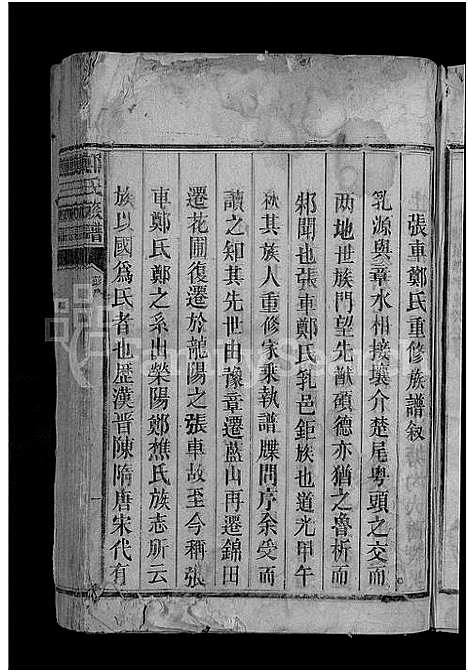 張車鄭氏重修族譜叙
乳源與章水相接壤介楚尾粤頭之交而
兩地世族門望先猷碩德亦猶之魯柝而
邾聞也張車鄭氏乳邑鉅族也道光甲午
秋其族人重修家乘執譜牒問序余受而
讀之知其先世由豫章遷藍山再遷錦田
遷花圃復遷於龍陽之張車故至今稱張
車鄭氏鄭之系出滎陽鄭樵氏族志所云
族以國爲氏者也歷漢晋陳隋唐宋代有
鄭氏族譜